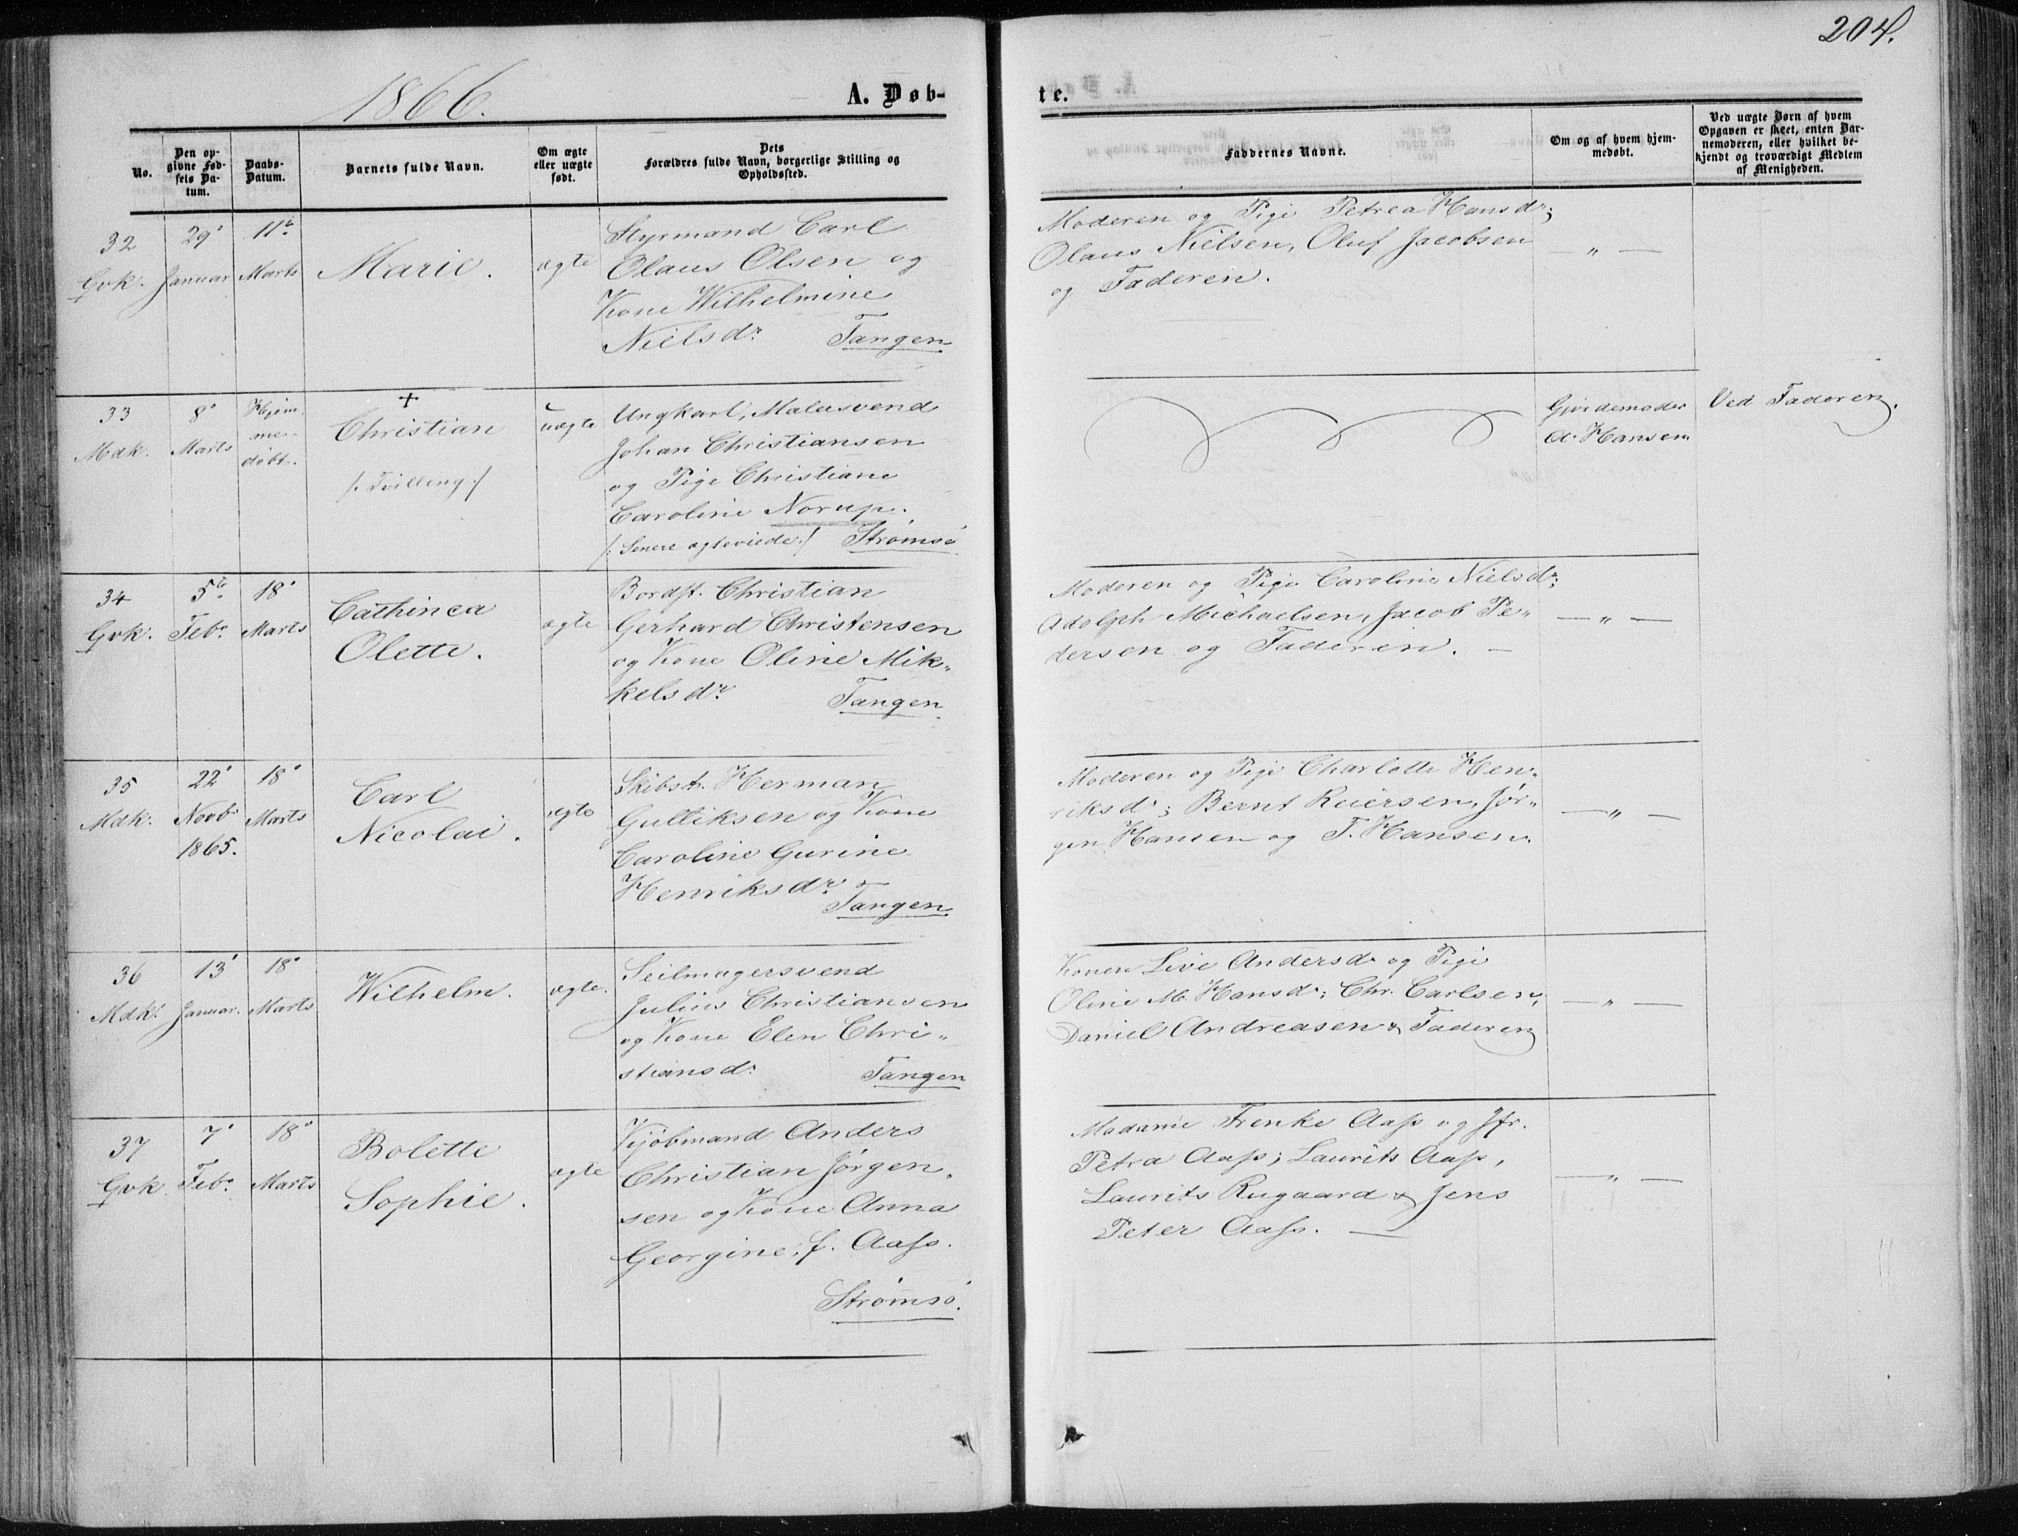 204.
1866.
A. Døb-
te.
No.
Den op-
givne Fød-
sels Da-
tum.
Daabs-
Datum.
Barnets fulde Navn.
Om ægte
eller uægte
født.
Dets
Forældres fulde Navn, borgerlige Stilling og
Opholdssted.
Faddernes Navne.
Om og af hvem hjem-
medøbt.
Ved uægte Børn af hvem
Opgaven er skeet, enten Bar-
nemoderen, eller hvilket be-
kjendt og troværdigt Medlem
af Menigheden.
32
Gvk.
29'
Januar
11te
Marts
Marie.
ægte
Styrmand Carl
Olaus Olsen og
Kone Wilhelmine
Nielsdr. Tangen
Moderen og Pige Petrea Hansdr;
Olaus Nielsen, Oluf Jacobsen
og Faderen.
— " —
33
Mdk.
8'
Marts
Hjem-
me-
døbt.
+
Christian
/: Tvilling :/
uægte
Ungkarl, Malersvend
Johan Christiansen
og Pige Christiane
Caroline Norup.
/: Senere ægteviede :/ Strømsø
Gjordemoder
A. Hansen
Ved Faderen.
34
Gvk.
5te
Febr.
18'
Marts
Cathinca
Olette.
ægte
Bordst. Christian
Gerhard Christensen
og Kone Oline Mik-
kelsdr. Tangen
Moderen og Pige Caroline Nielsdr;
Adolph Michaelsen, Jacob Pe-
dersen og Faderen. —
— " —
35
Mdk.
22'
Novbr
1865.
18'
Marts
Carl
Nicolai.
ægte
Skibst. Herman
Gulliksen og Kone
Caroline Gurine
Henriksdr. Tangen
Moderen og Pige Charlotte Hen-
riksdr; Bernt Reiersen, Jør-
gen Hansen og F. Hansen.
— " —
36
Mdk.
13'
Januar.
18'
Marts
Wilhelm.
ægte.
Seilmagersvend
Julius Christiansen
og Kone Elen Chri-
stiansdr. Tangen
Konen Live Andersdr og Pige
Oline M. Hansdr; Chr. Carlsen,
Daniel Andreasen & Faderen
— " —
37
Gvk.
7'
Febr.
18'
Marts
Bolette
Sophie.
ægte
Kjøbmand Anders
Christian Jørgen-
sen og Kone Anna
Georgine, f. Aass.
Strømsø.
Madame Frenke Aass og Jfr.
Petra Aass; Laurits Aass,
Laurits Rugaard & Jens
Peter Aass. —
— " —